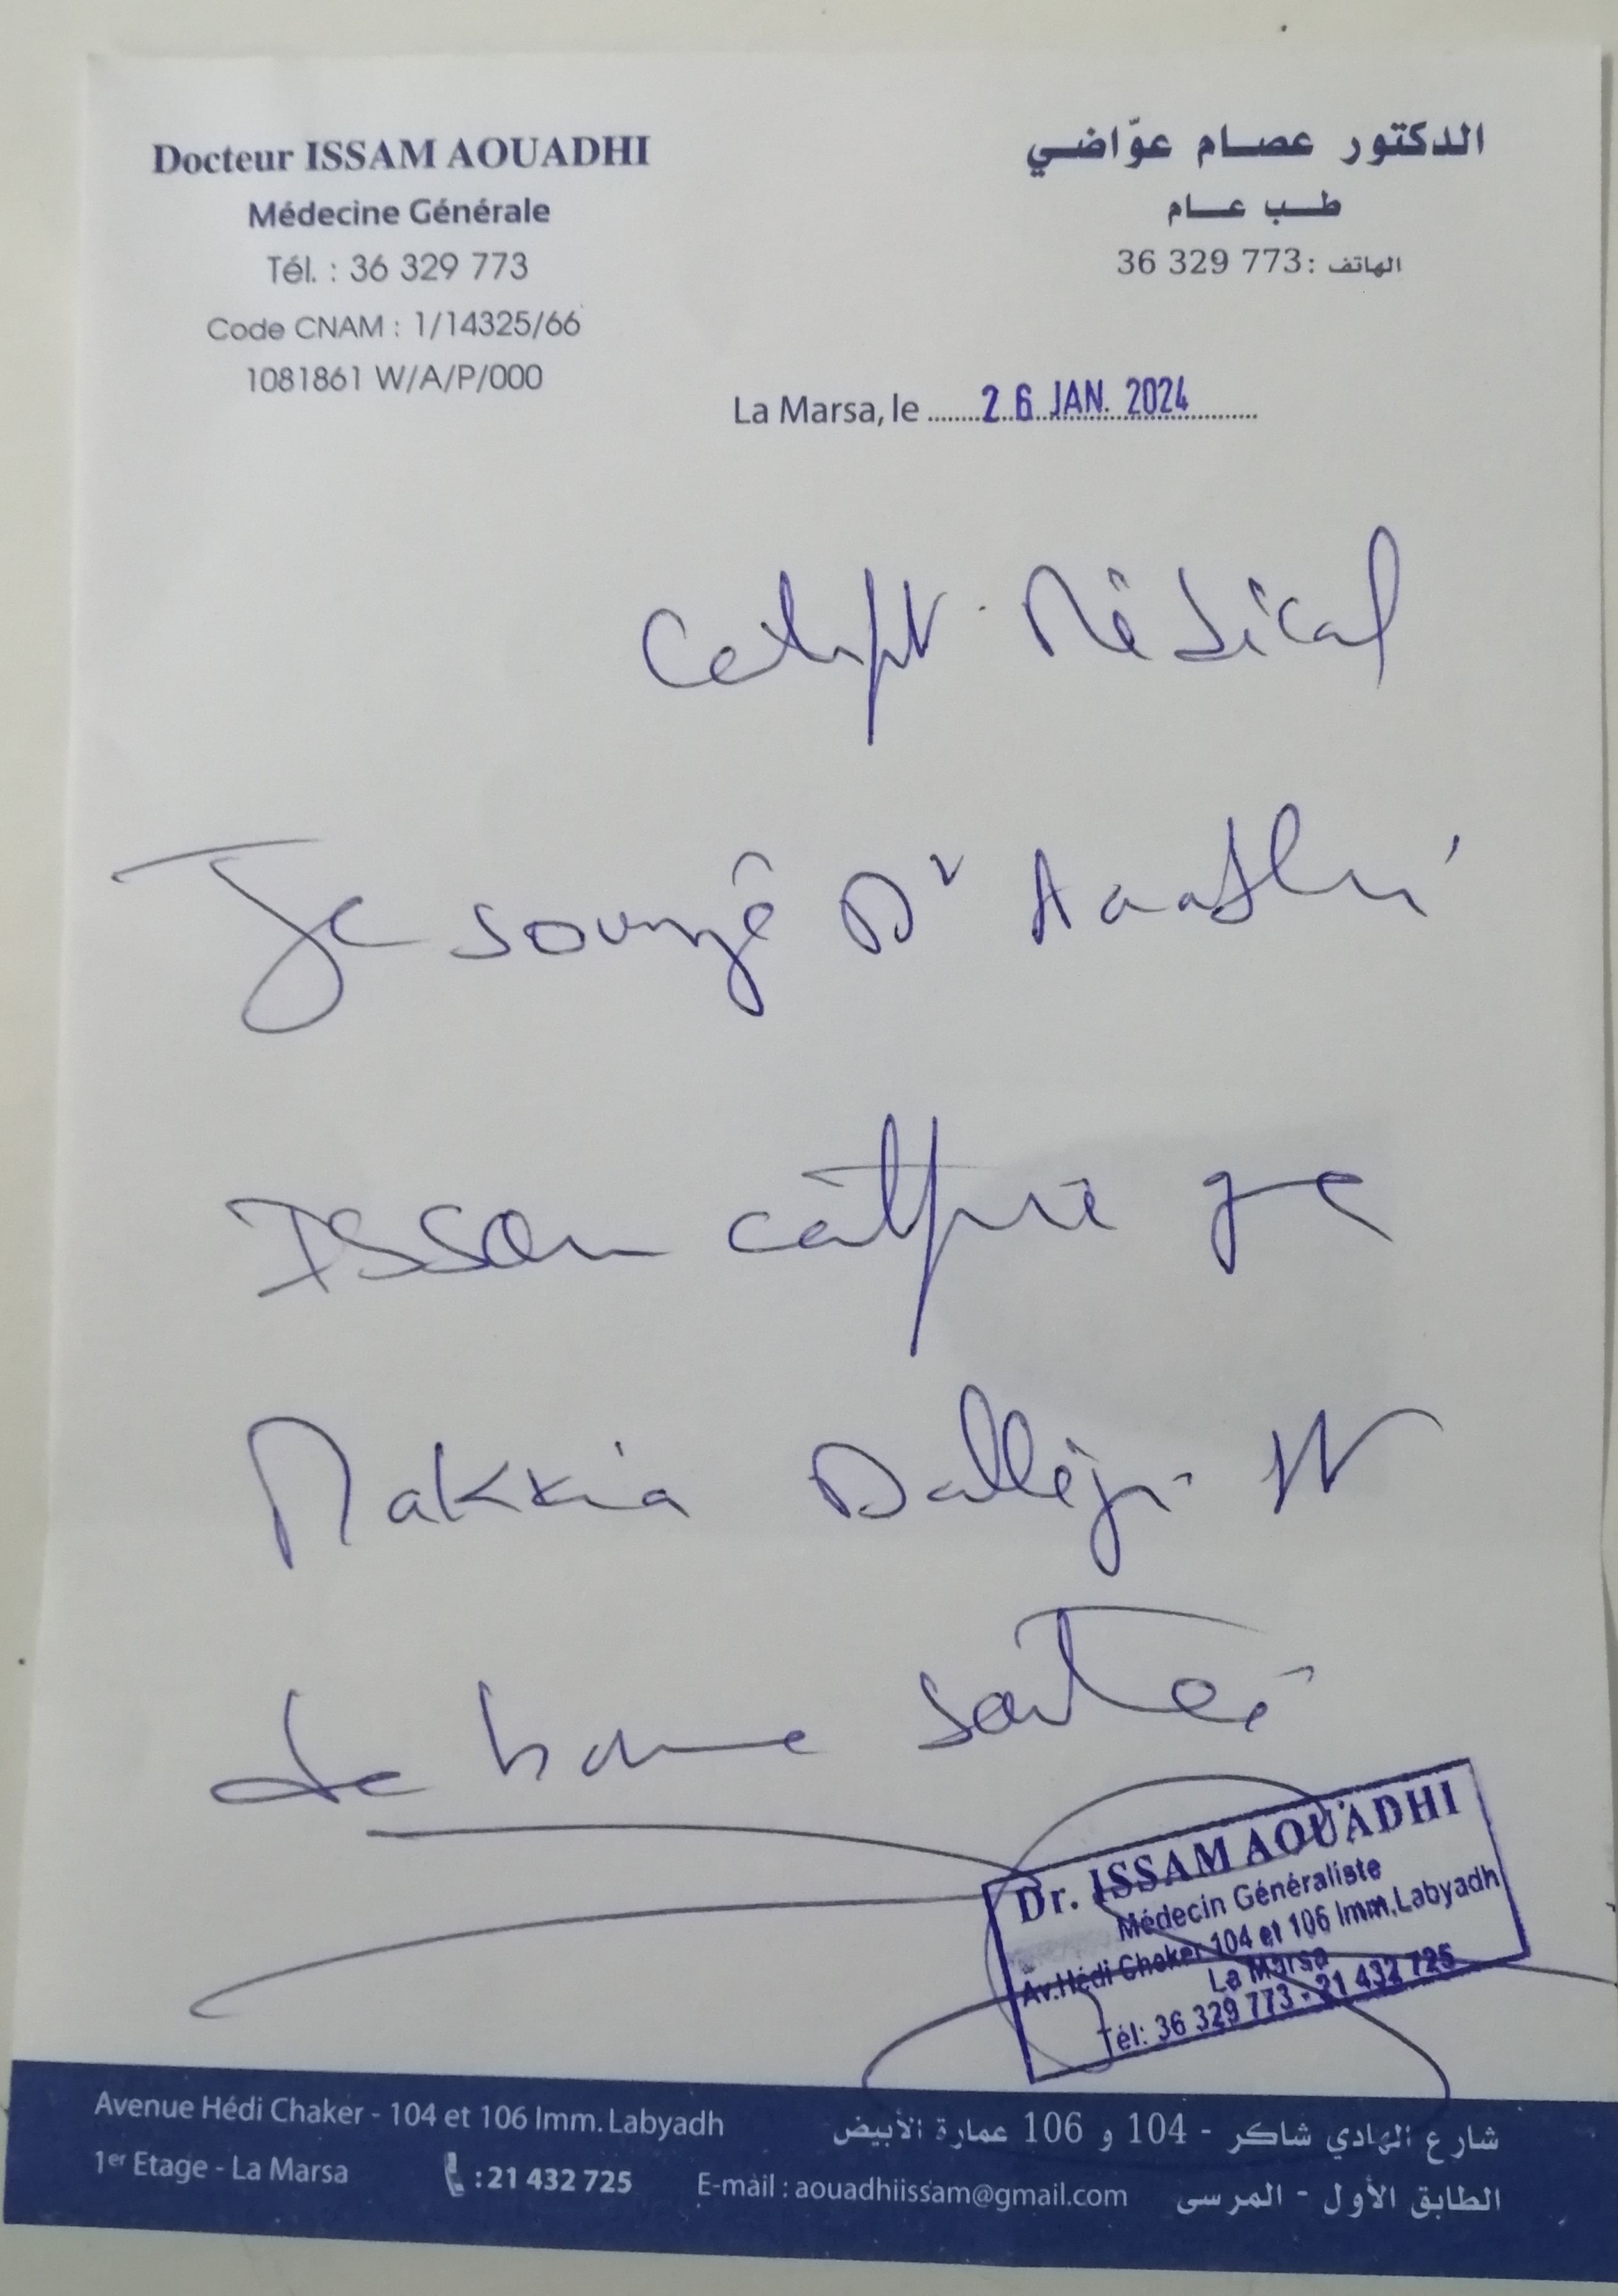 Docteur ISSAM AOUADHI
Médecine Générale
Tél. : 36 329 773
Code CNAM : 1/14325/66
1081861 W/A/P/000
الدكتور عصام عوّاضي
طب عام
الهاتف : 36 329 773
La Marsa, le ........ 26 JAN. 2024 ........
Médical
Je Dr Aouadhi
Issam
Makkia
de bonne santé
Dr. ISSAM AOUADHI
Médecin Généraliste
Av.Hédi Chaker 104 et 106 Imm.Labyadh
La Marsa
Tél: 36 329 773 - 21 432 725
Avenue Hédi Chaker - 104 et 106 Imm. Labyadh
1er Etage - La Marsa
: 21 432 725
E-mail : aouadhiissam@gmail.com
شارع الهادي شاكر - 104 و 106 عمارة الأبيض
الطابق الأول - المرسى